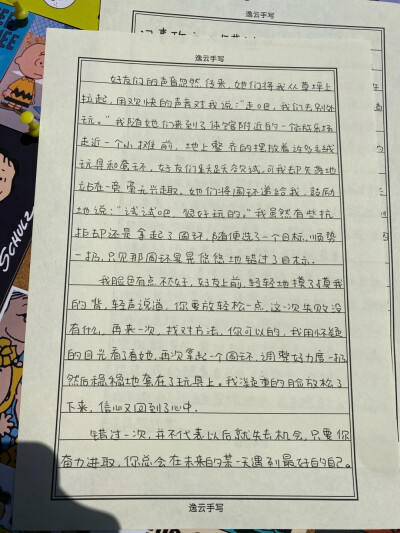 逸云手写
好友们的声音忽然传来,她们将我从草坪上
拉起,用欢快的声音对我说:“走吧,我们去别处
玩。”我随她们来到了体馆附近的一个游乐场
走近一个小摊前,地上整齐的摆放着许多毛绒
玩具和套环,好友们跃跃欲试,可我却失落地
站在一旁毫无兴趣。她们将圆环递给我,鼓励
地说:“试试吧,很好玩的。”我虽然有些抗
拒却还是拿起了圆环,随便选了一个目标,顺势
一扔,只见那圆环晃晃悠悠地错过了目标。
我脸色有点不好,好友上前,轻轻地摸了摸我
的背,轻声说道,你要放轻松一点,这一次失败没
有什么,再来一次,找对方法,你可以的,我用怀疑
的目光看了看她,再次拿起一个圆环,调整好力度一扔
然后稳稳地套在了玩具上。我沉重的脸放松了
下来,信心又回到了心中。
错过一次,并不代表以后就失去机会,只要你
奋力进取,你总会在未来的某一天遇到最好的自己。
逸云手写
逸云手写
SCHULZ